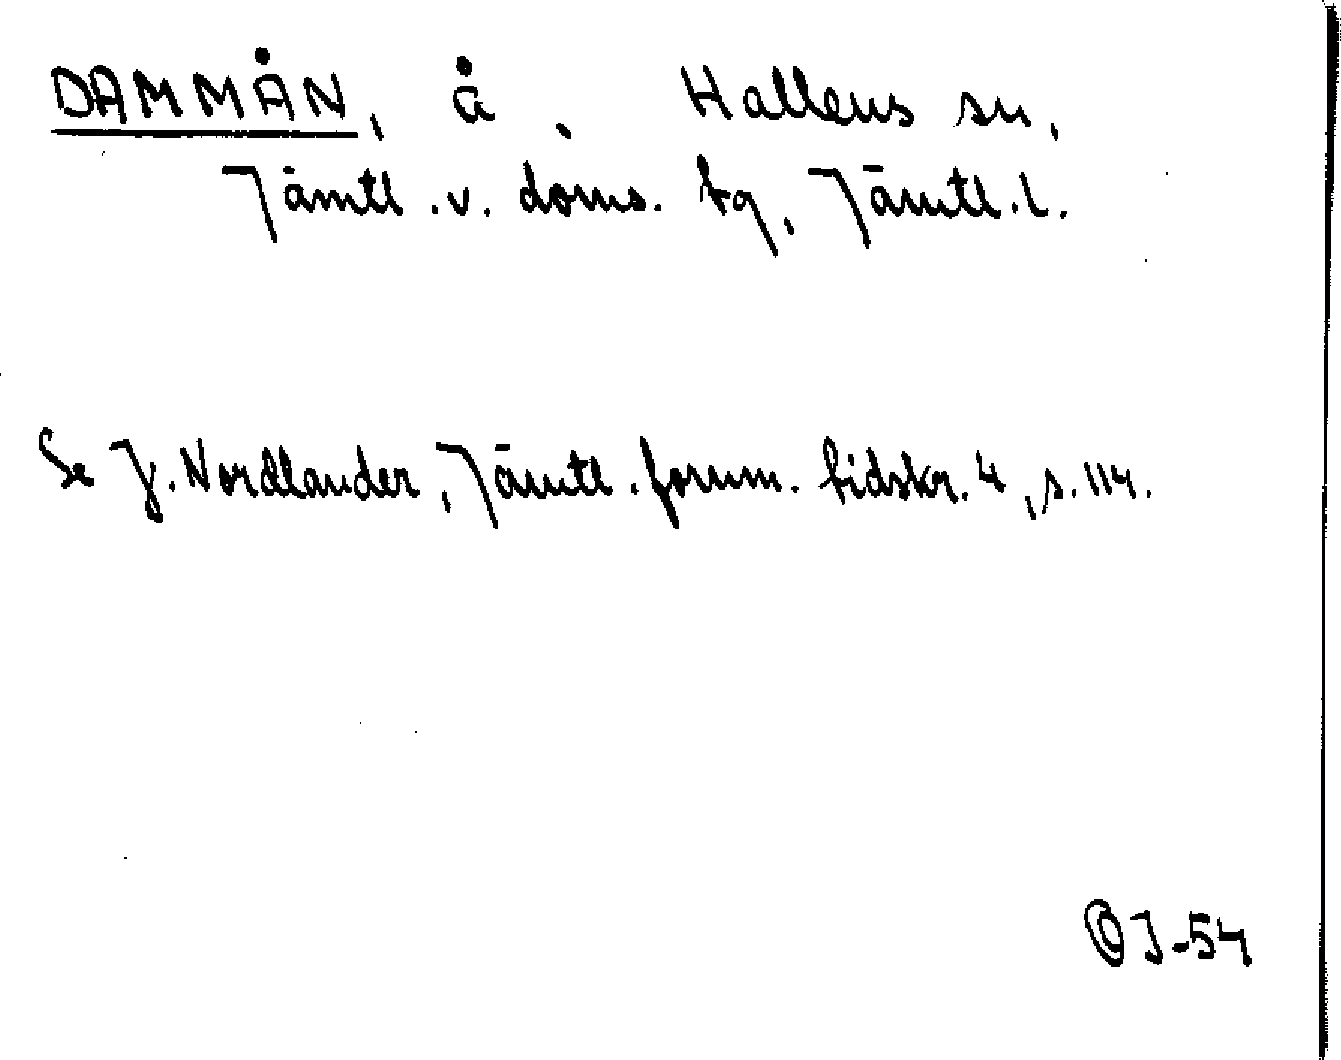 DAMMÅN, å, Hallens sn,
Jämtl. v. doms. tg, Jämtl. l.
Se J. Nordlander, Jämtl. fornm. tidskr. 4, s. 114.
OJ-54